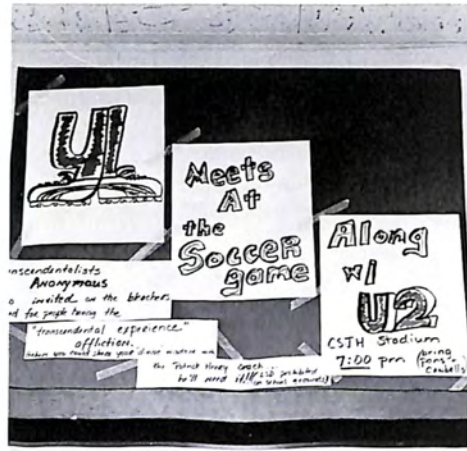 41
Meets
At
the
Soccer
game
Along
w/
U2
CSTH Stadium
7:00 pm (bring
pans +
Cowbells)
nscendentalists
ANONYMOUS
o invited on the bleachers
nd for people having the
"transcendental experience"
affliction.
the Patrick Henry Coach...
he'll need it!!! (LSD prohibited
on school grounds)